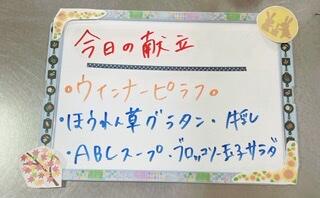 今日の献立
・ウィンナーピラフ・
・ほうれん草グラタン・牛乳
・ABCスープ・ブロッコリー玉子サラダ